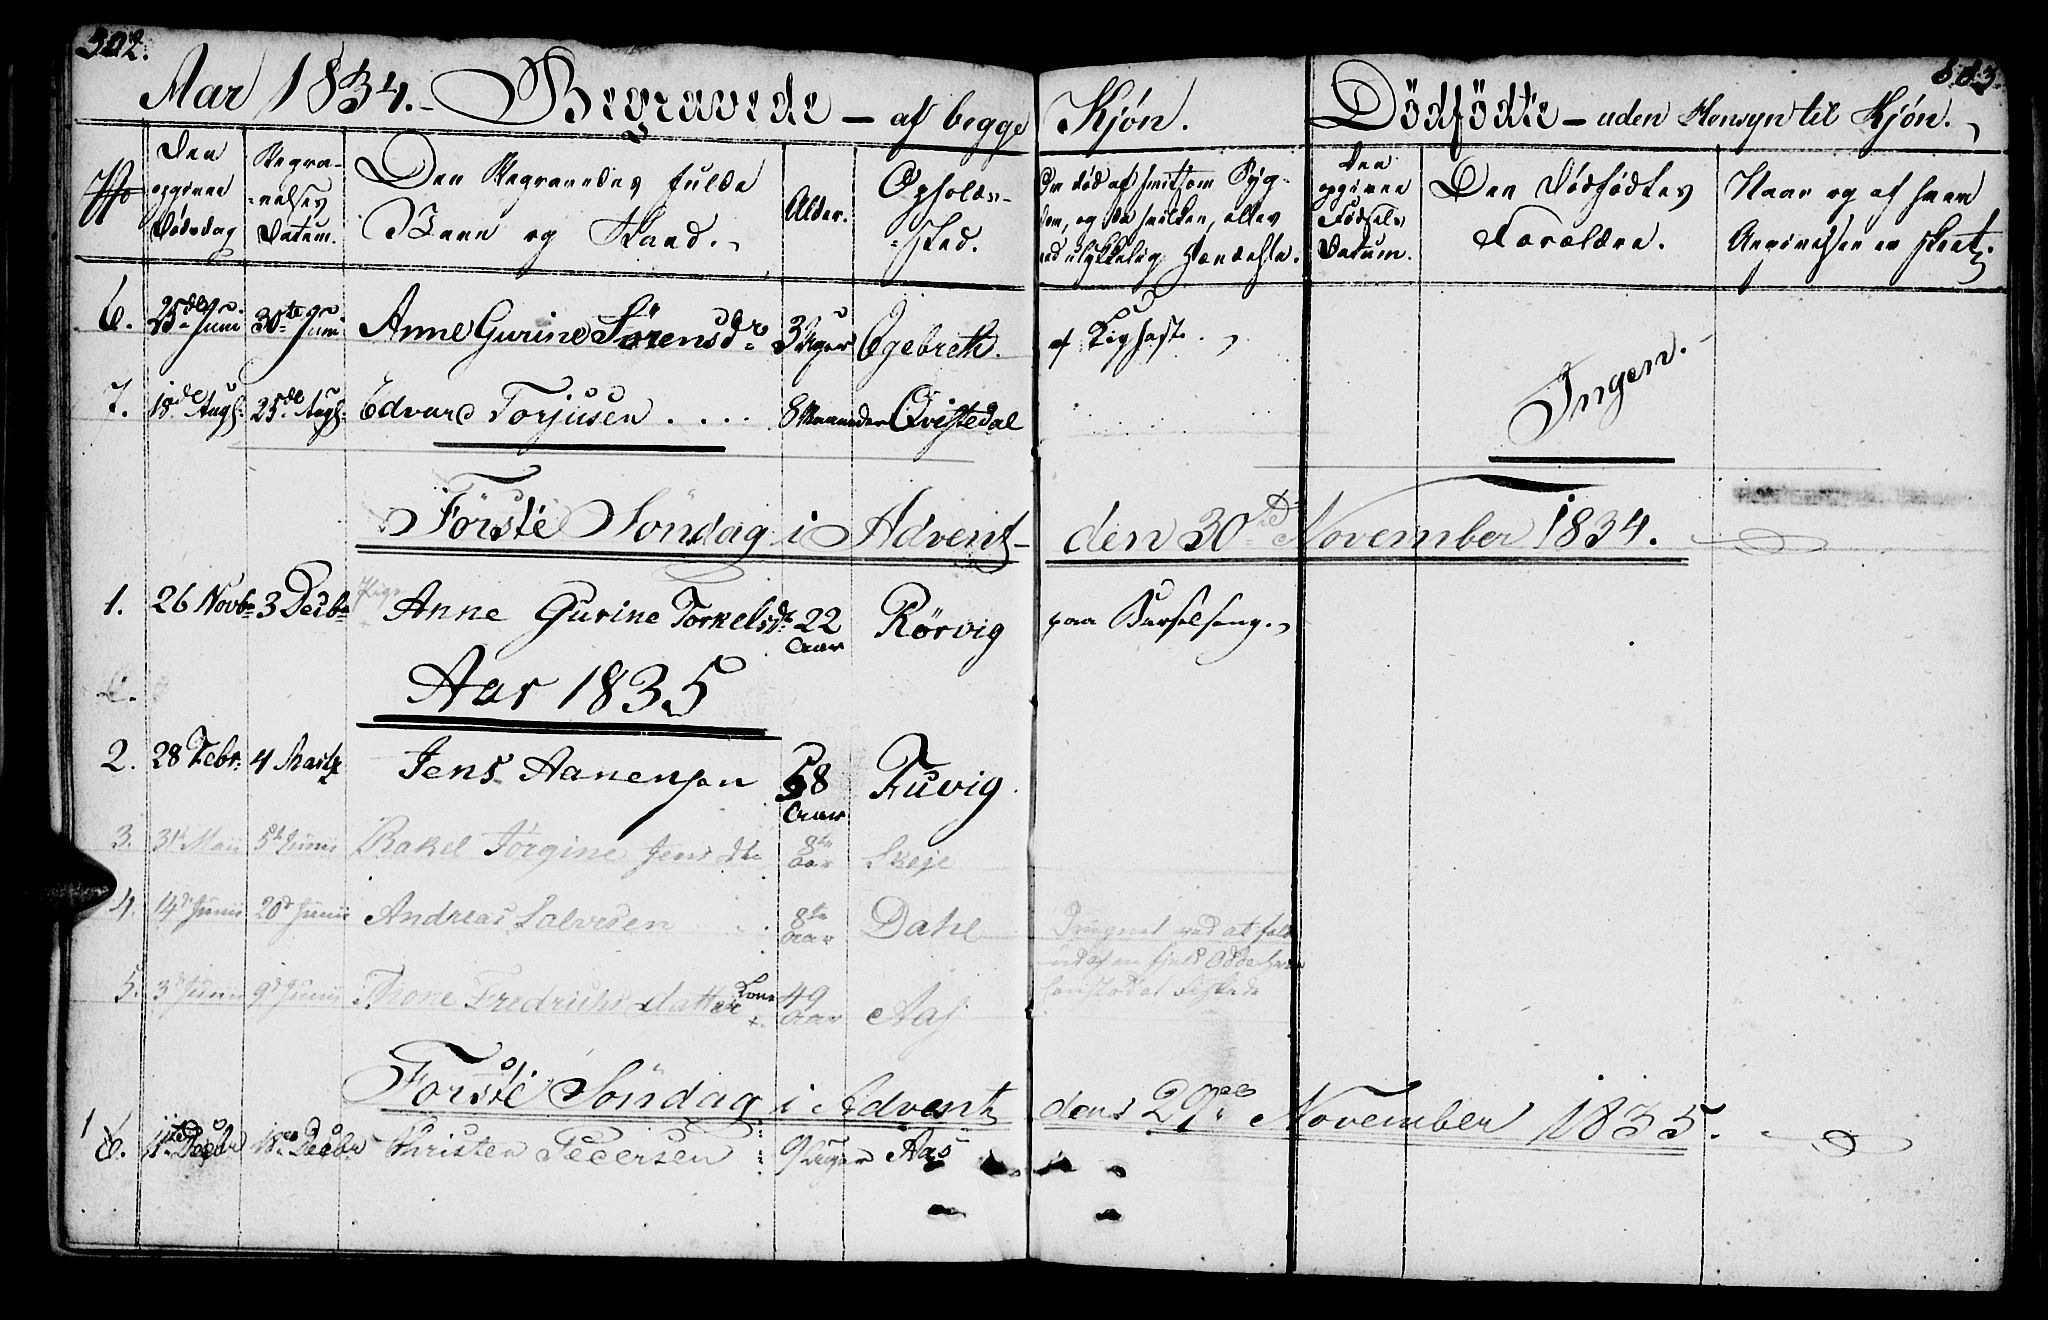 302.
Aar 1834. - Begravede - af begge Kjøn.
Dödfödte - uden Hensyn til Kjøn.
No
Den opgivne Dödsdag
Begravelses Datum.
Den Begravedes fulde Navn og Stand.
Alder.
Opholdssted.
Om död af smitsom Sygdom, og da hvilken, eller ved ulykkelig Hændelse.
Den opgivne Födsels Datum.
Den Dödfödtes Forældre.
Naar og af hvem Angivelsen er skeet.
6. 25de Juni 30te Juni Anne Gurine Sörensdr 3 Uger Egebreth. af Kighoste.
Ingen.
7. 18de Augs. 25de Augs. Edvard Torjusen.... 8 Maaneder Qvistedal
Förste Söndag i Advent den 30te November 1834.
1. 26 Novbr 3 Decbr Anne Gurine Torkelsdr 22 Aar Rörvig paa Barselseng.
Aar 1835
2. 28 Febr. 4 Marts Jens Aanensen 58 Aar Fuvig
3. 31te Maii 5te Junii Rakel Jörgine Jensdtr 8te Aar Skeje
4. 14de Junii 20de Junii Andreas Salvesen 8te Aar Dahl Drugnet ved at falde
ud af en fjeld
5. 3de Junii 9de Junii Throne Fredrichs datter Kone 49 Aar Aas
Förste Söndag i Advent den 29de November 1835.
1
6. 11te Decbr 18de Decbr Christen Pedersen 9 Uger Aas